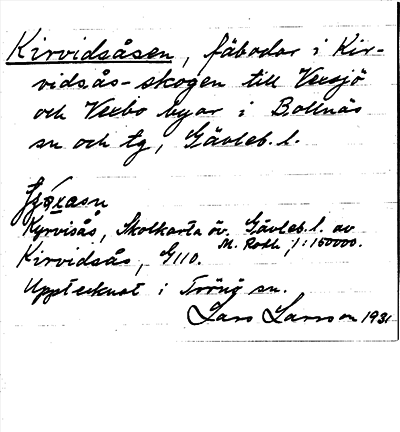 Kirvidsåsen, fäbodar i Kir-
vidsås-skogen till Vexsjö
och Vexbo byar i Bollnäs
sn och tg, Gävleb. l.
Kyrvisås, Skolkarta öv. Gävleb. l. av
M. Roth, 1:150000.
Kirvidsås, G110.
Upptecknat i Trönö sn.
Lars Larsson 1931